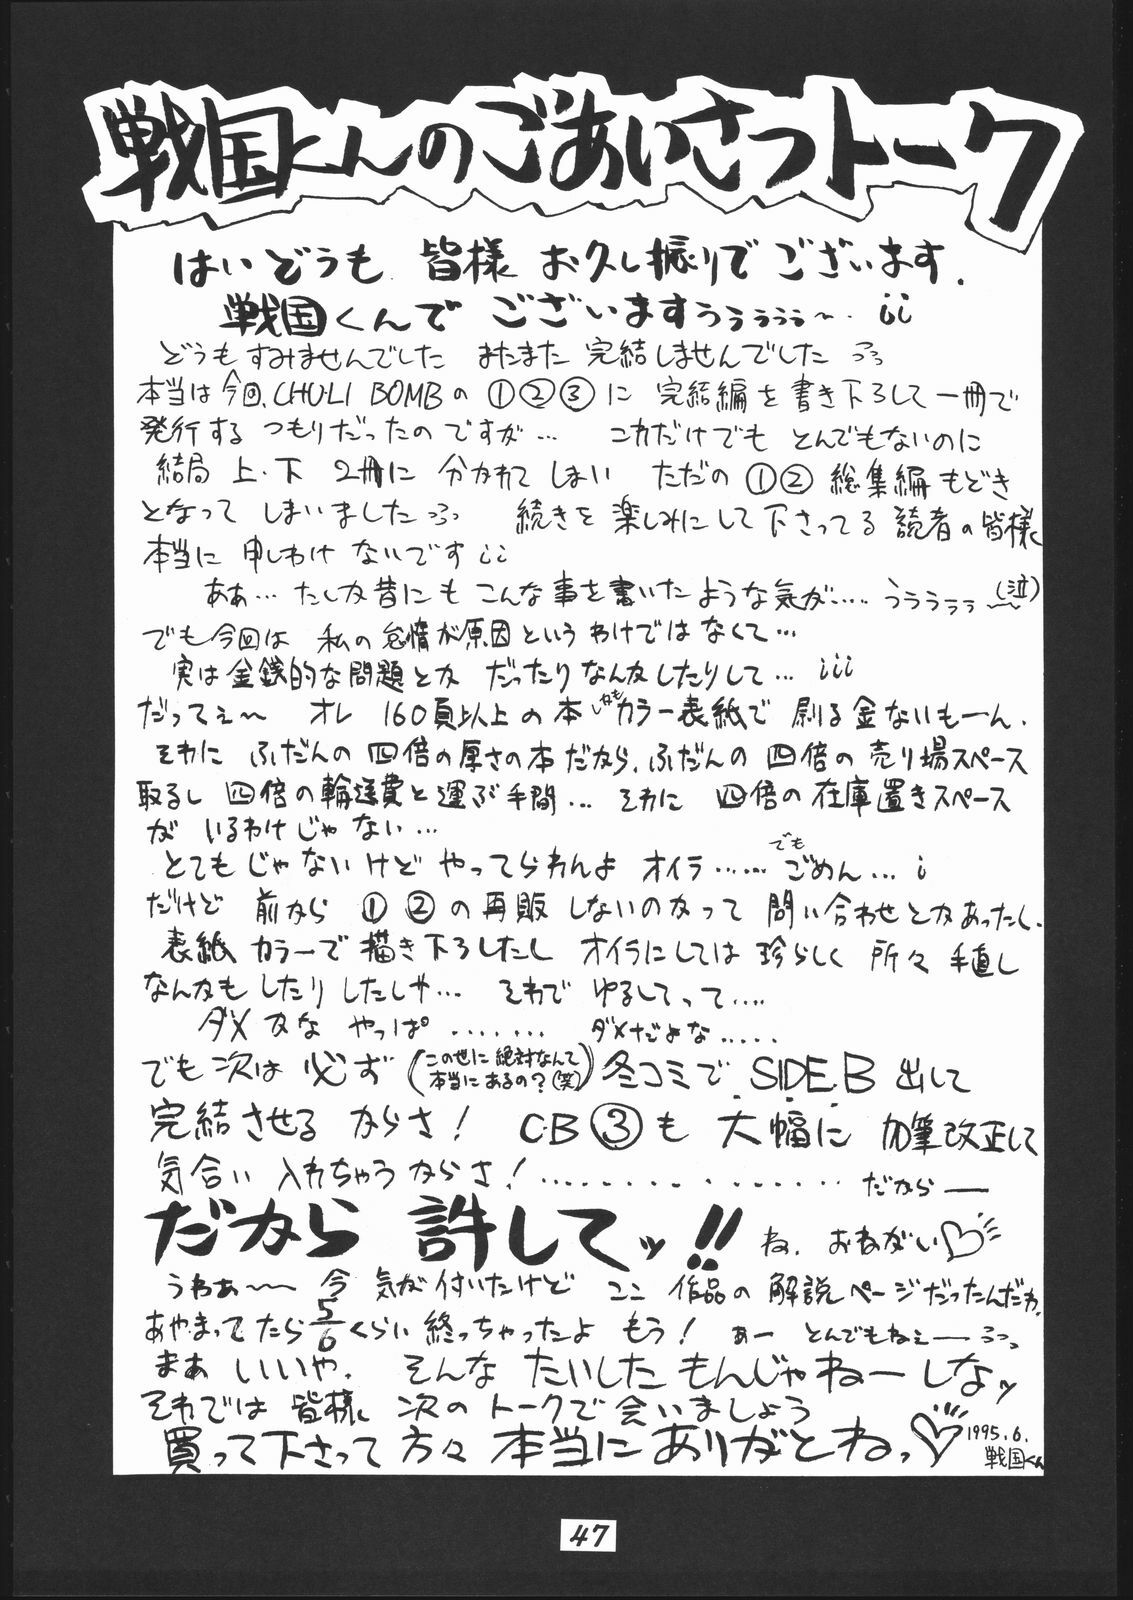 戦国くんのごあいさつトーク
はいどうも 皆様 お久し振りでございます.
戦国くんで ございますぅぅぅぅぅ〜..
どうもすみませんでした またまた 完結しませんでした
本当は今回、CHU.LI BOMBの ①②③に 完結編を書き下ろして一冊で
発行する つもりだったのですが… これだけでも とんでもないのに
結局 上・下 2冊に 分かれて しまい ただの①② 総集編もどき
となって しまいました 続きを楽しみにして下さってる 読者の皆様
本当に 申しわけ ないです
ああ… たしか昔にも こんな事を書いたような気が…. うぅうぅぅ〜(泣)
でも今回は 私の怠惰が原因というわけではなくて…
実は金銭的な問題とか だったりなんかしたりして…
だってぇ〜 オレ 160頁以上の本しかもカラー表紙で 刷る金ないもーん.
それに ふだんの 四倍の厚さの本だから、ふだんの 四倍の 売り場スペース
取るし 四倍の輸送費と 運ぶ手間… それに 四倍の在庫置きスペース
が いるわけじゃない…
とてもじゃないけど やってられんよ オイラ…… でも ごめん…
だけど 前から ①②の再販 しないのかって 問い合わせとかあったし.
表紙 カラーで 描き下ろしたし オイラにしては 珍らしく 所々 手直し
なんかも したり したしサ… それで ゆるしてって….
ダメ かな やっぱ ....... ダメだよな.....
でも次は 必ず (この世に 絶対なんて 本当にあるの?(笑)) 冬コミで SIDE.B 出して
完結させる からさ! C.B ③も 大幅に 加筆改正して
気合い 入れちゃうからさ!.................. だから—
だから 許してッ!! ね、おねがい♡
うわぁ〜 今 気が付いたけど ここ 作品の 解説ページだったんだわ.
あやまってたら 5/6くらい 終っちゃったよ もう! あー とんでもねぇー
まあ いいや. そんな たいした もんじゃねーしなッ
それでは 皆様 次のトークで会いましょう
買って下さって 方々 本当に ありがとねっ♡ 1995.6.
戦国くん
47